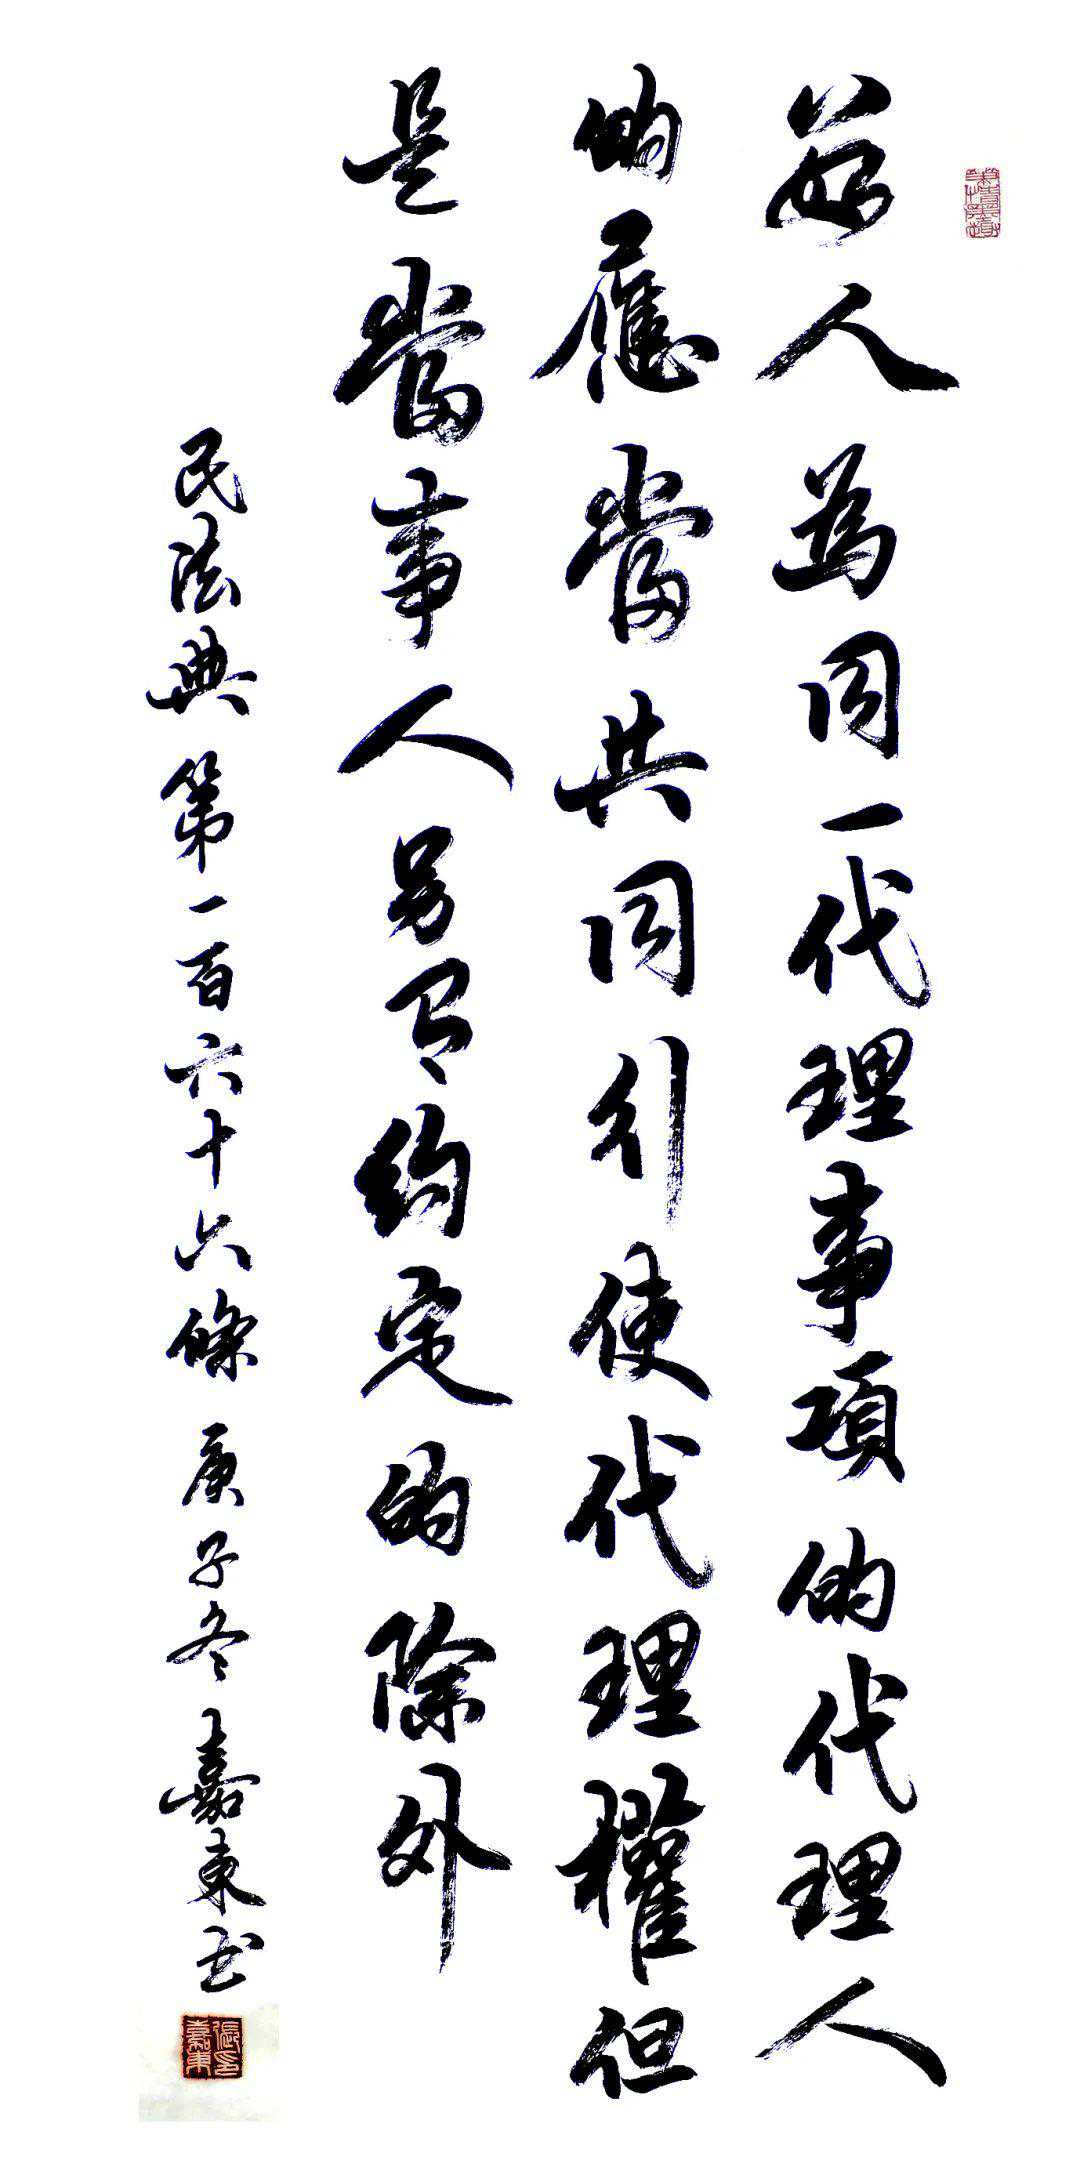 數人為同一代理事項的代理人
的應當共同行使代理權但
是當事人另有約定的除外
民法典第一百六十六條 庚子冬嘉東书
張印嘉東